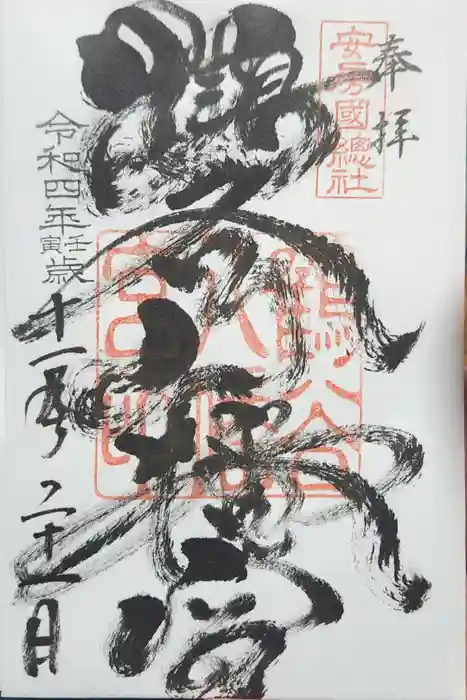 奉拝
安房國總社
鶴谷八幡宮
鶴谷八幡宮印
令和四年壬寅歳十一月二十一日